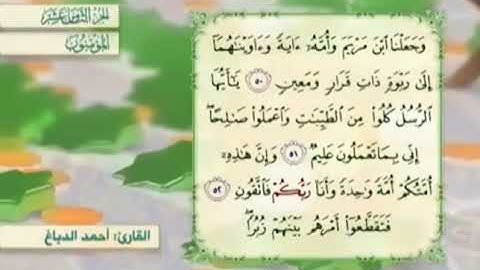 الجزء الثامن عشر
المؤمنون
وَجَعَلْنَا ٱبْنَ مَرْيَمَ وَأُمَّهُۥٓ ءَايَةً وَءَاوَيْنَٰهُمَآ
إِلَىٰ رَبْوَةٍ ذَاتِ قَرَارٍ وَمَعِينٍ ٥٠ يَٰٓأَيُّهَا
ٱلرُّسُلُ كُلُوا۟ مِنَ ٱلطَّيِّبَٰتِ وَٱعْمَلُوا۟ صَٰلِحًا ۖ
إِنِّى بِمَا تَعْمَلُونَ عَلِيمٌ ٥١ وَإِنَّ هَٰذِهِۦٓ
أُمَّتُكُمْ أُمَّةً وَٰحِدَةً وَأَنَا۠ رَبُّكُمْ فَٱتَّقُونِ ٥٢
فَتَقَطَّعُوٓا۟ أَمْرَهُم بَيْنَهُمْ زُبُرًا ۖ
القارئ: أحمد الدباغ